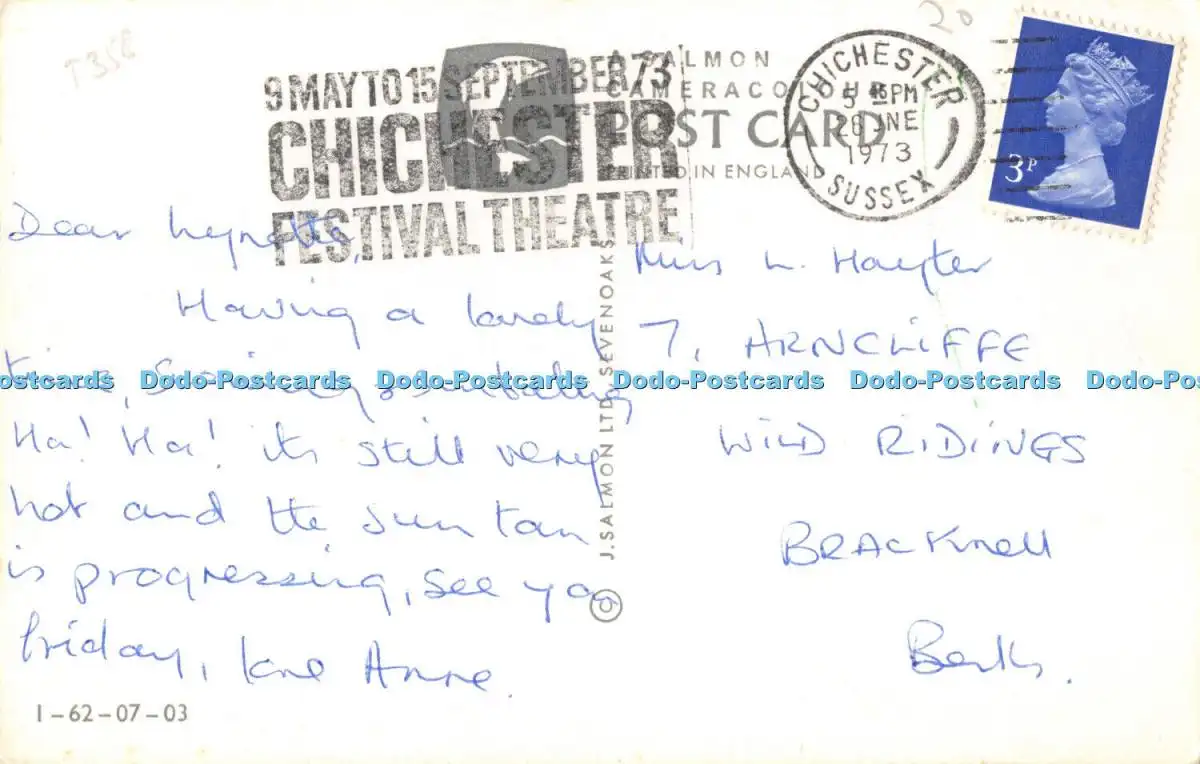 T358
20
9 MAY TO 15 SEPTEMBER 73
CHICHESTER
FESTIVAL THEATRE
A SALMON
CAMERACOLOUR
POST CARD
PRINTED IN ENGLAND
CHICHESTER
5 45 PM
28 JNE
1973
SUSSEX
3P
Dear Lynette,
Having a lovely
time,
Ha! Ha! its still very
hot and the sun tan
is progressing, see you
Friday, love Anne.
Miss L. Hayter
7, ARNCLIFFE
WILD RIDINGS
BRACKnell
Berks.
J. SALMON LTD. SEVENOAKS ©
Dodo-Postcards Dodo-Postcards Dodo-Postcards Dodo-Postcards Dodo-Postcards Dodo-Postcards
1-62-07-03